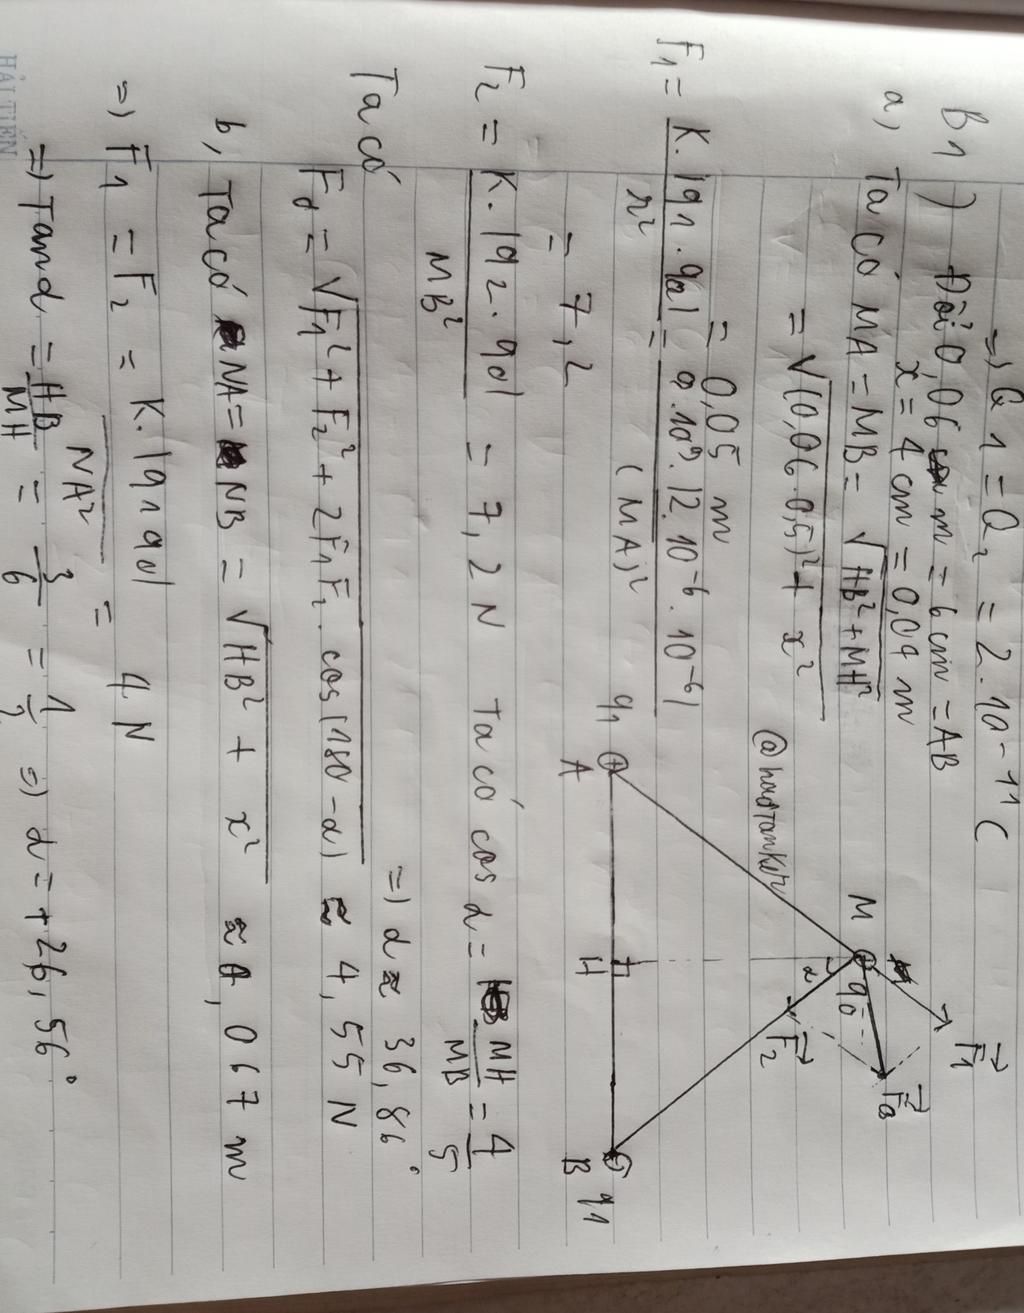 => Q1 = Q2 = 2.10-11 C
B1) Đổi 0,06 m = 6 cm = AB
x = 4 cm = 0,04 m
a, Ta có MA = MB = √HB² + MH²
= √(0,06 0,5)² + x²
= 0,05 m
F1 = K.|q1.q0| / r² = 9.10⁹.|2.10⁻⁶.10⁻⁶| / (MA)²
= 7,2
F2 = K.|q2.q0| / MB² = 7,2 N Ta có cos α = MH / MB = 4 / 5
=> α ≈ 36,86°
Ta có
F0 = √F1² + F2² + 2F1F2.cos(180-α) ≈ 4,55 N
b, Ta có NA = NB = √HB² + x² ≈ 0,067 m
=> F1 = F2 = K.|q1q0| / NA² = 4 N
=> Tanα = HB / MH = 3 / 6 = 1 / 2 => α = + 26,56°
M
q0
F1
F0
F2
α
q1
A
H
B
q1
HẢI TIẾN